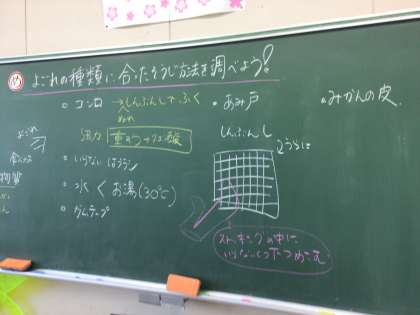 め
よごれの種類に合ったそうじ方法を調べよう!
○コンロ → しんぶんしでふく
ぬれ
強力 重そう→クエン酸
○いらないはブラシ
○水くお湯(30℃)
○ガムテープ
・あみ戸
しんぶんし
うらに
ストッキングの中に
いらないくつ下つめこむ
・みかんの皮
よごれ
物質